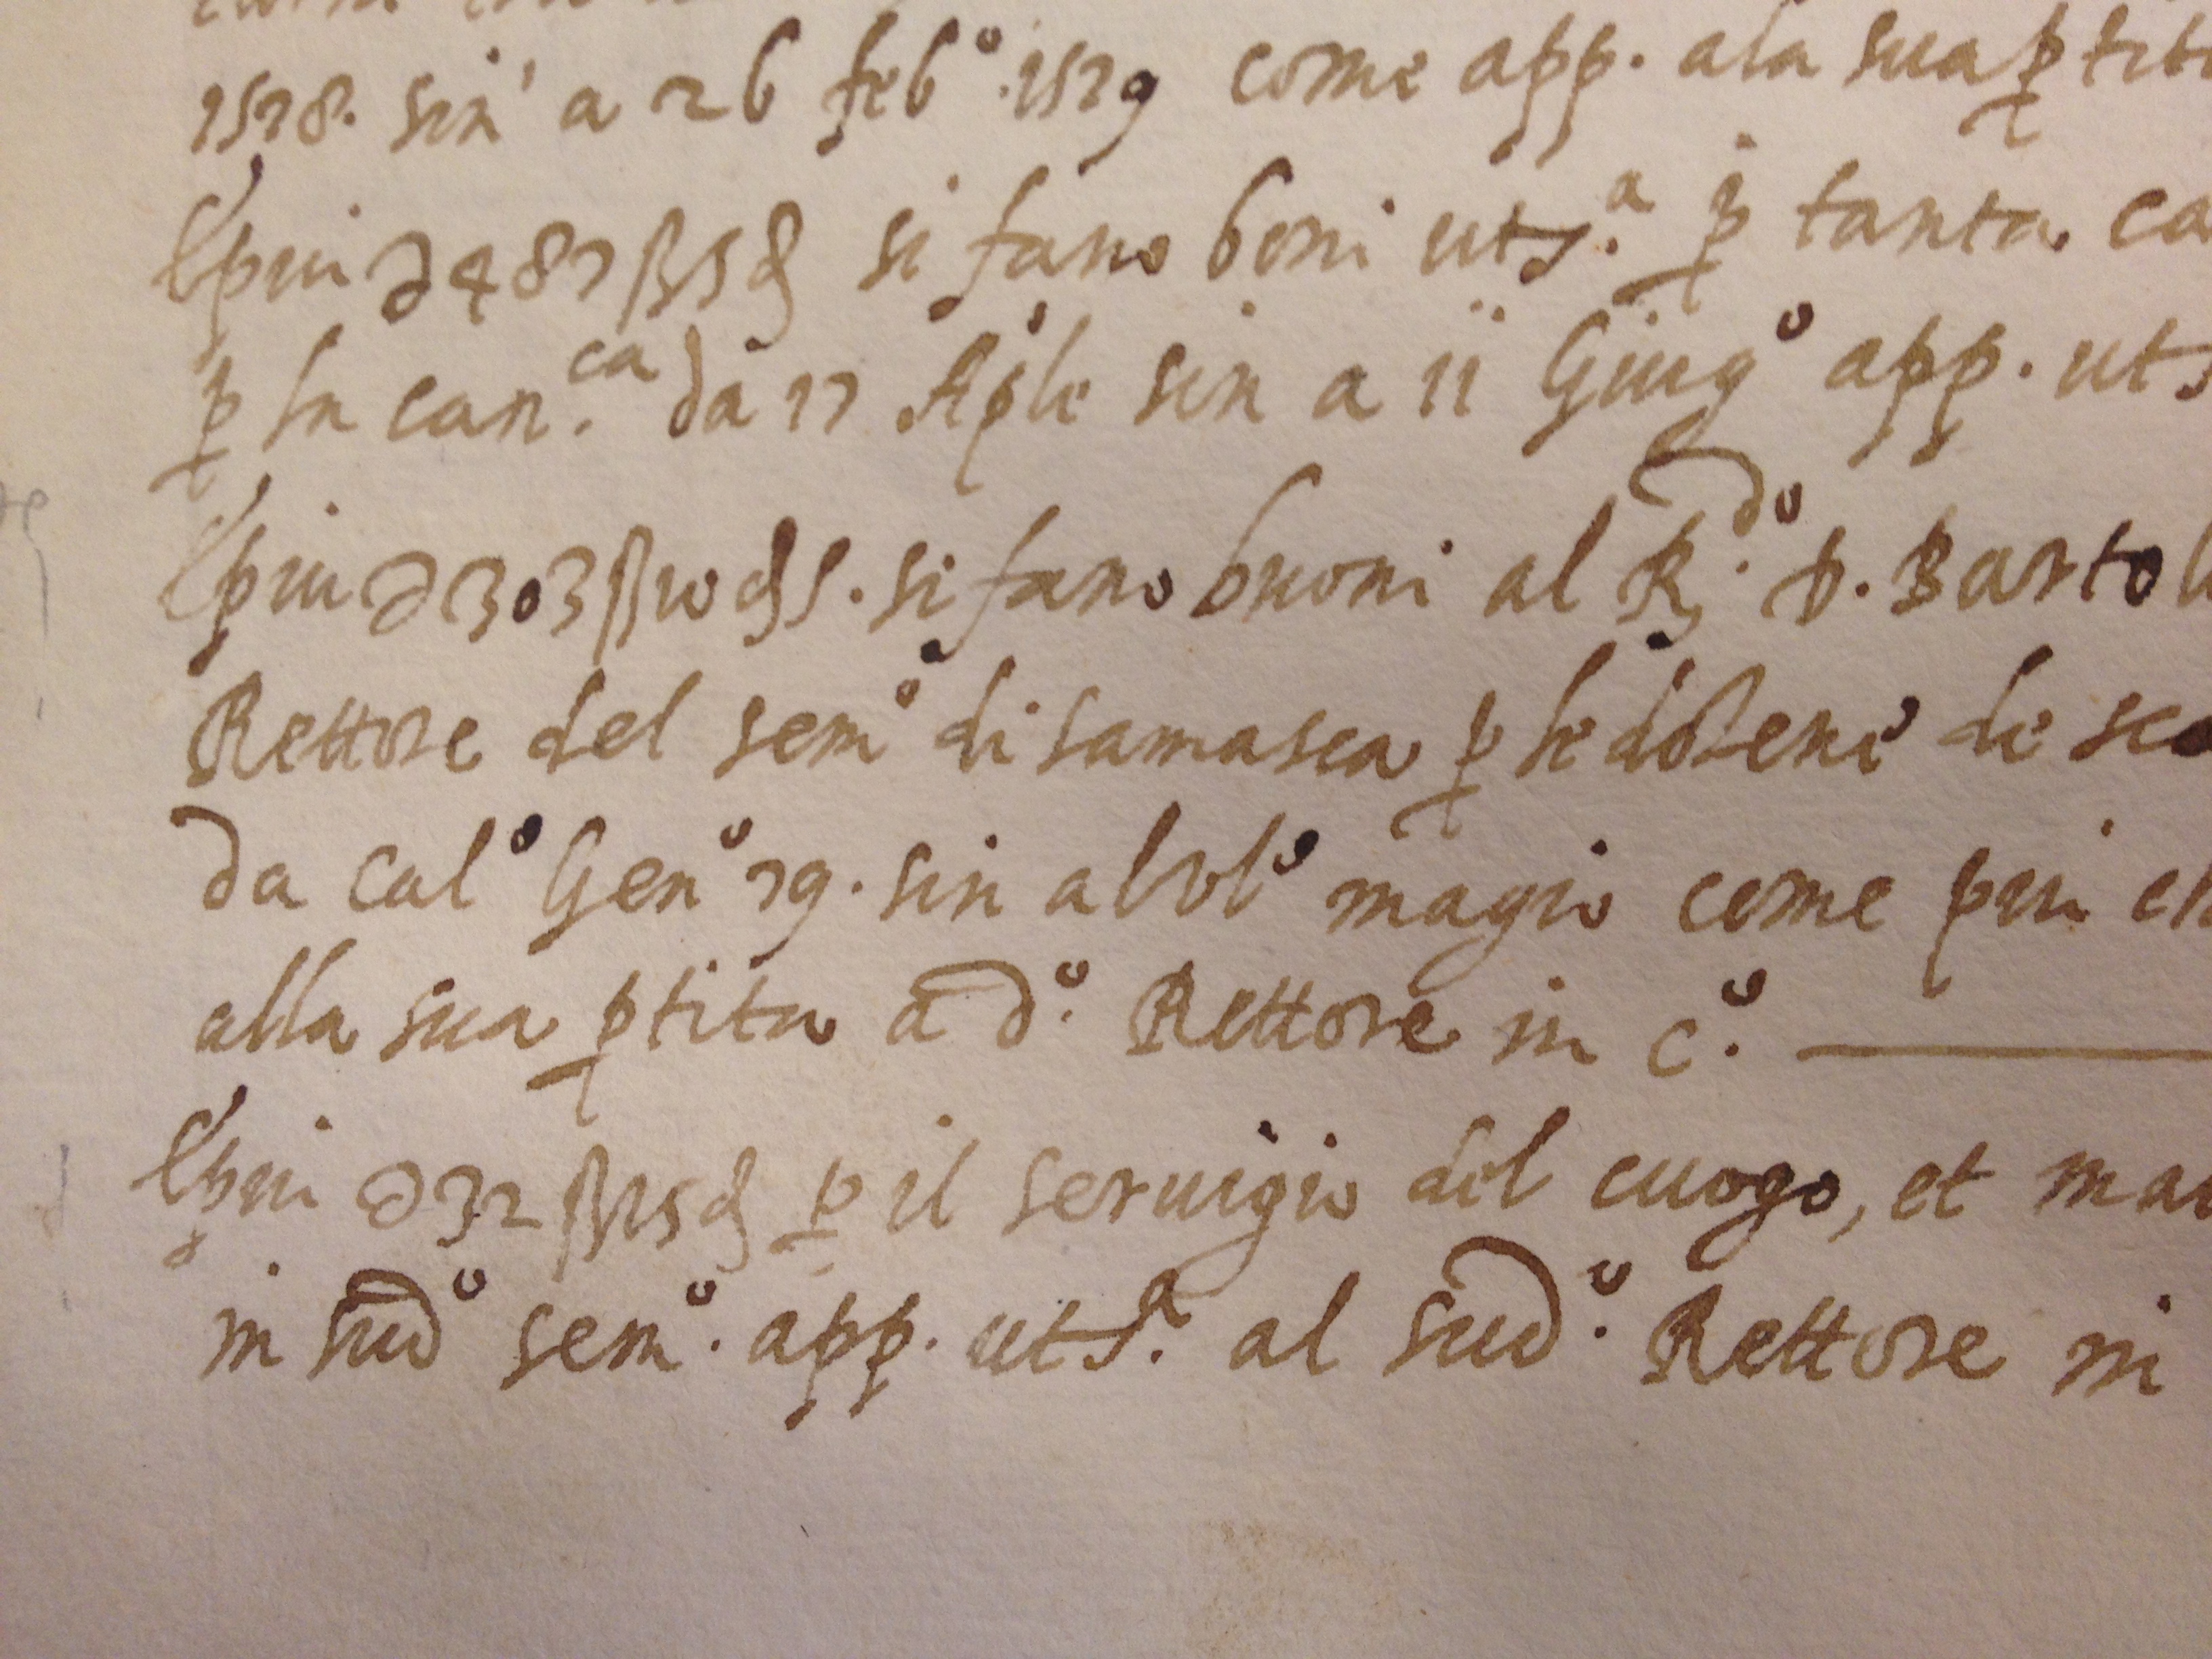 1578. sin' a 26 feb° .1579 come app. ala sua ptita
E piu ∂ 487 ß 5 ₰ si fano boni uts.ᵃ p tanta ca
p la can.ᶜᵃ da 17 Aple sin a 11 Giug° app. uts
E piu ∂ 303 ß 10 ₰ 5. si fano buoni al R.ᵈ° D. Bartol
Rettore del sem° di samasca p le dozene de sco
da cal° Gen° 79. sin al ul° magio come piu
alla sua ptita a d°. Rettore in c°.
E piu ∂ 32 ß 15 ₰ p il seruigio del cuogo, et ma
in sud° sem°. app. uts.ᵃ al sud°. Rettore in